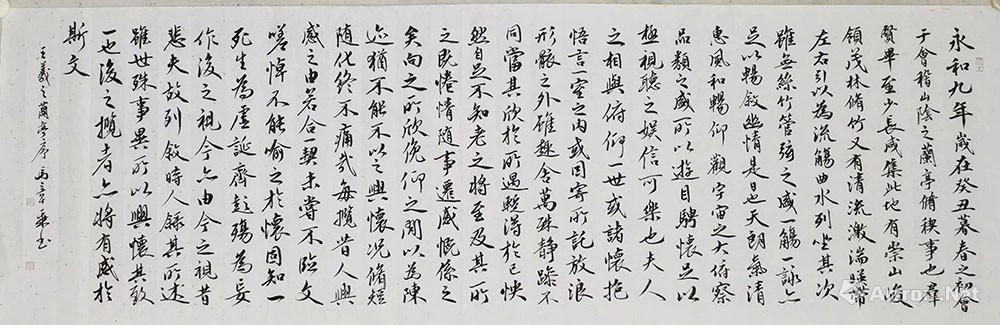 永和九年歲在癸丑暮春之初會
于會稽山陰之蘭亭脩稧事也羣
賢畢至少長咸集此地有崇山峻
領茂林脩竹又有清流激湍暎帶
左右引以為流觴曲水列坐其次
雖無絲竹管弦之盛一觴一詠亦
足以暢敘幽情是日也天朗氣清
惠風和暢仰觀宇宙之大俯察
品類之盛所以遊目騁懷足以
極視聽之娛信可樂也夫人
之相與俯仰一世或諸懷抱
悟言一室之内或因寄所託放浪
形骸之外雖趣舍萬殊靜躁不
同當其欣於所遇蹔得於己怏
然自足不知老之將至及其所
之既惓情隨事遷感慨係之
矣向之所欣俛仰之閒以為陳
迹猶不能不以之興懷況脩短
隨化終不痛哉每攬昔人興
感之由若合契未嘗不臨文
嗟悼不能喻之於懷固知一
死生為虛誕齊彭殤為妄
作後之視今亦由今之視昔
悲夫故列敘時人錄其所述
雖世殊事異所以興懷其致
一也後之攬者亦將有感於
斯文
王羲之蘭亭序
Artron.Net